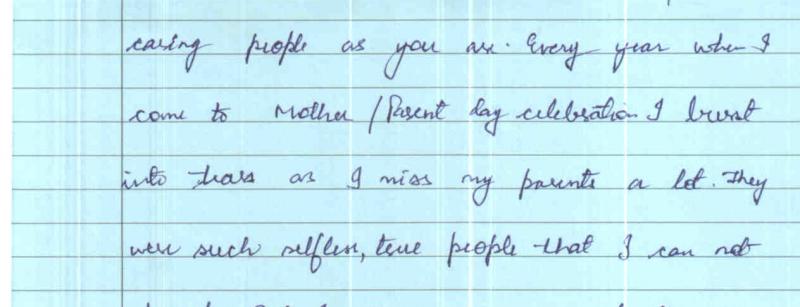 caring people as you are. Every year when I
come to Mother / Parent day celebration I burst
into tears as I miss my parents a lot. They
were such selfless, true people that I can not